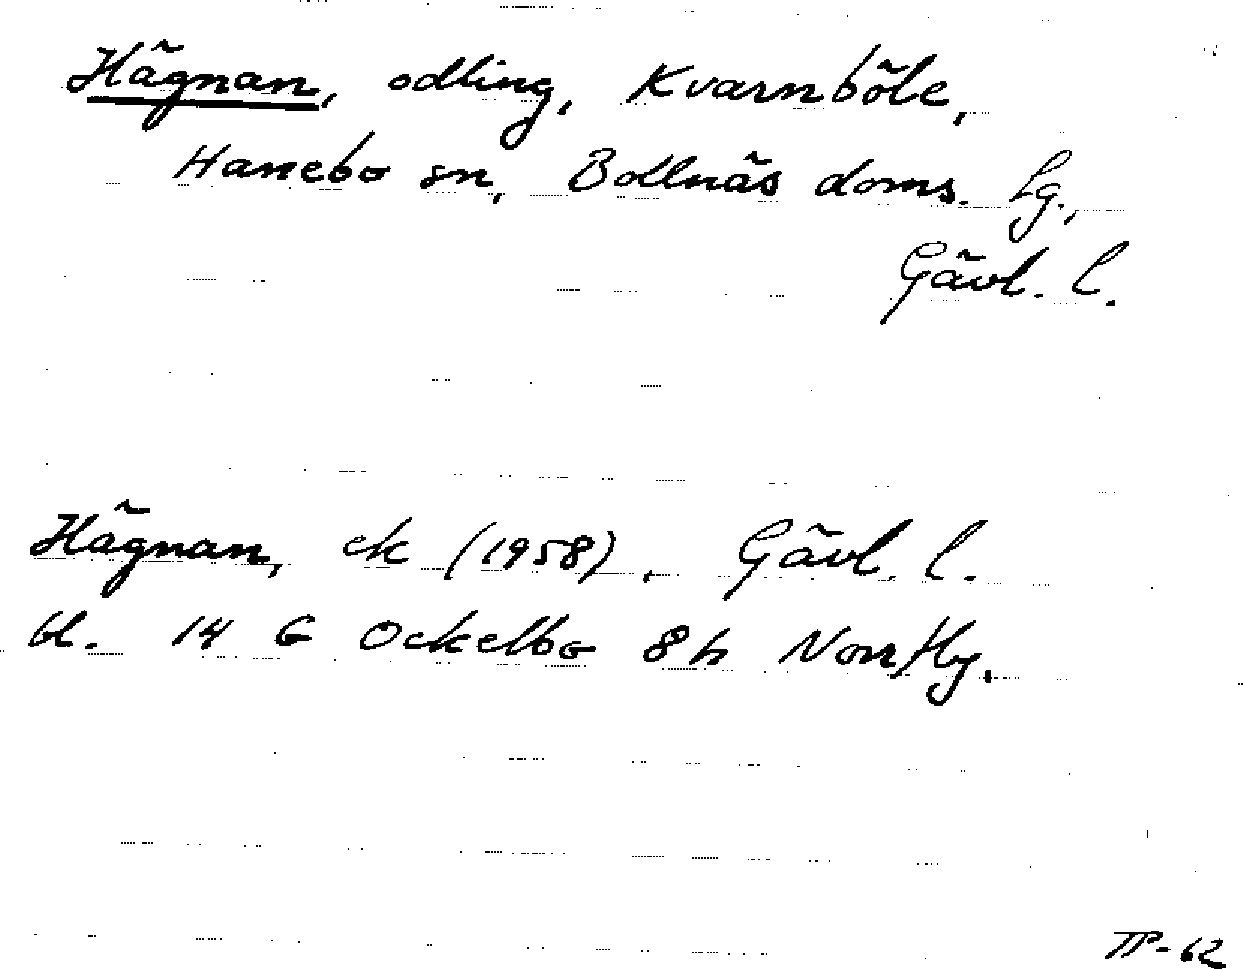 Hägnan, odling, Kvarnböle,
Hanebo sn, Bollnäs doms. lg.,
Gävl. l.
Hägnan, ek (1958), Gävl. l.
bl. 14 G Ockelbo 8h
TP-62